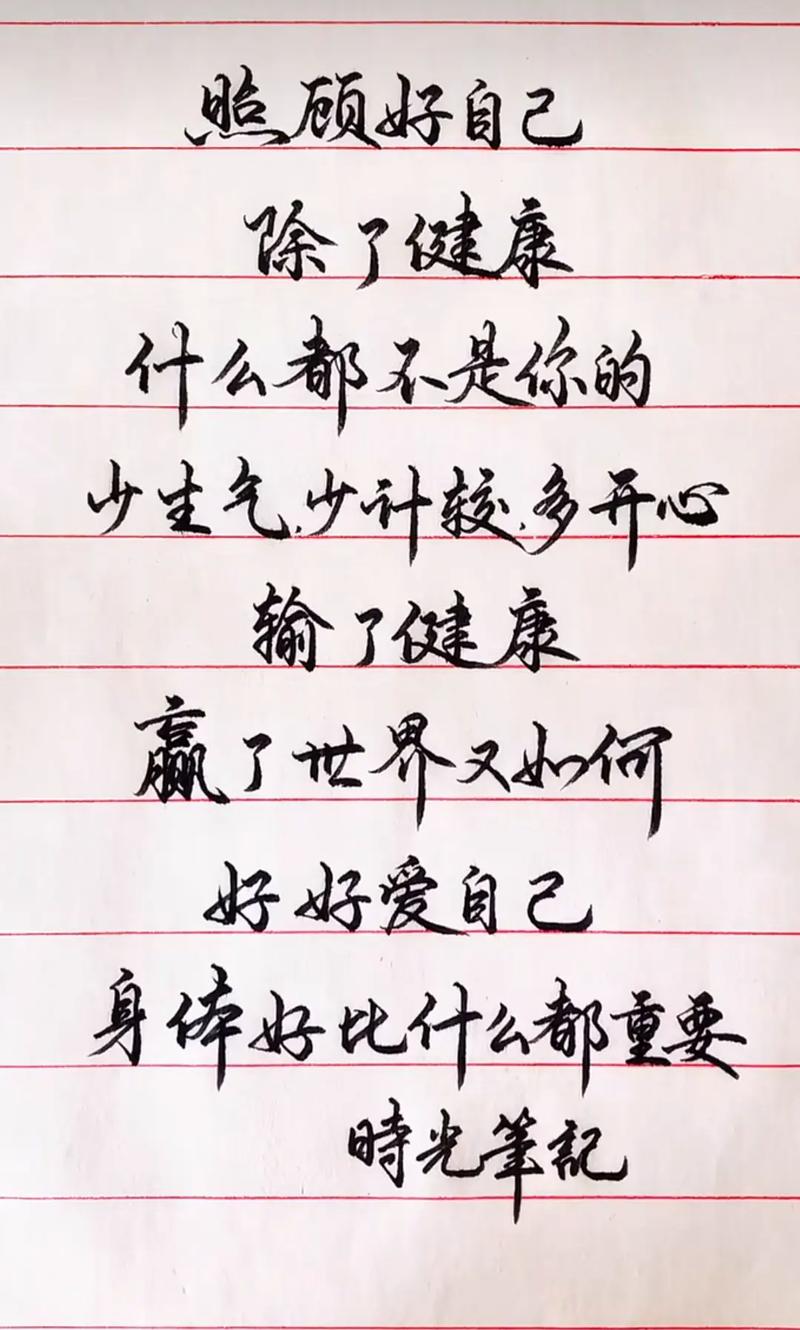 照顾好自己
除了健康
什么都不是你的
少生气,少计较,多开心
输了健康
赢了世界又如何
好好爱自己
身体好比什么都重要
時光筆記